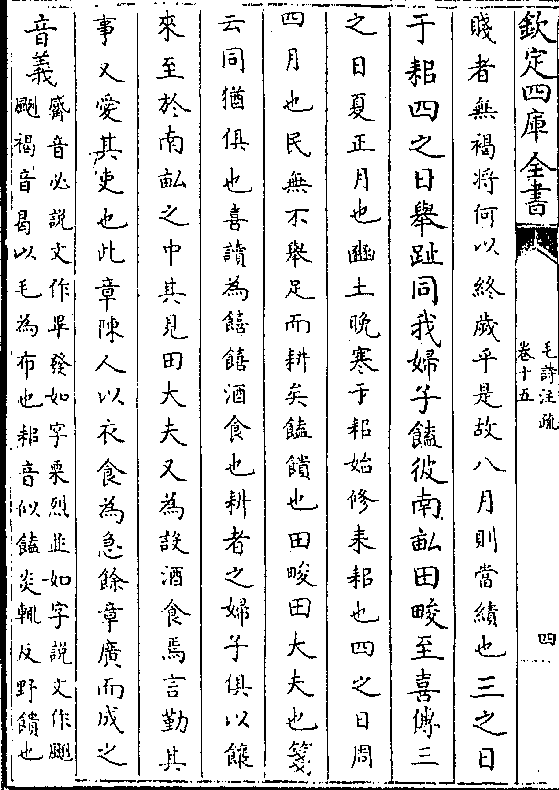 欽定四庫全書
毛詩注疏
卷十五
四
賤者無褐將何以終歲乎是故八月則當績也三之日
于耜四之日舉趾同我婦子饁彼南畝田畯至喜傳三
之日夏正月也豳土晚寒于耜始修耒耜也四之日周
四月也民無不舉足而耕矣饁饋也田畯田大夫也箋
云同猶俱也喜讀為饎饎酒食也耕者之婦子俱以饟
來至於南畝之中其見田大夫又為設酒食焉言勤其
事又愛其吏也此章陳人以衣食為急餘章廣而成之
音義
觱音必説文作畢發如字栗烈並如字説文作颲
颲褐音曷以毛為布也耜音似饁炎輒反野饋也